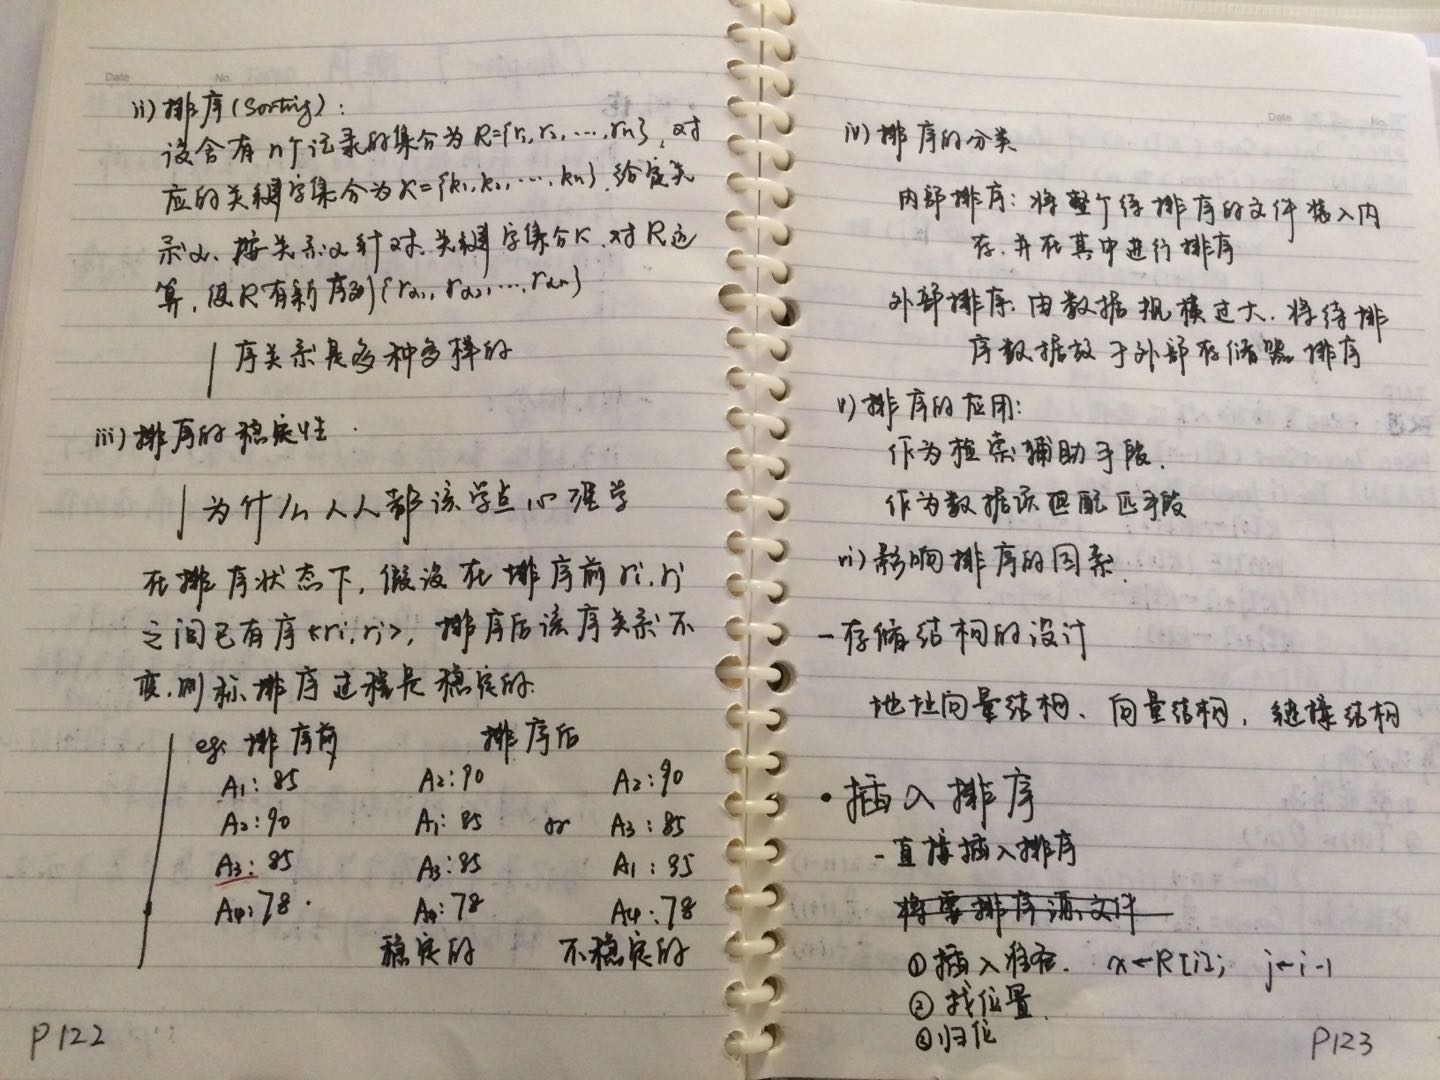 Date No.
ii) 排序(Sorting):
设含有n个记录的集合为R={r1, r2, ..., rn}, 对
应的关键字集合为K={k1, k2, ..., kn}, 给定关
系α, 按关系α针对关键字集合K, 对R运
算, 使R有新序列{rα1, rα2, ..., rαn}
序关系是多种多样的
iii) 排序的稳定性.
为什么人人都该学点心理学
在排序状态下, 假设在排序前ri, rj
之间已有序<ri, rj>, 排序后该序关系不
变, 则称排序过程是稳定的.
eg: 排序前 排序后
A1:85 A2:90 A2:90
A2:90 A1:85 or A3:85
A3:85 A3:85 A1:85
A4:78 A4:78 A4:78
稳定的 不稳定的
P122
Date No.
iv) 排序的分类
内部排序: 将整个待排序的文件装入内
存, 并在其中进行排序
外部排序: 由数据规模过大, 将待排
序数据放于外部存储器排序
v) 排序的应用:
作为检索辅助手段.
作为数据项匹配匹手段
vi) 影响排序的因素.
- 存储结构的设计
地址向量结构、向量结构, 链接结构
• 插入排序
- 直接插入排序
将需排序源文件
① 插入准备. x←R[i]; j←i-1
② 找位置.
③ 归位
P123